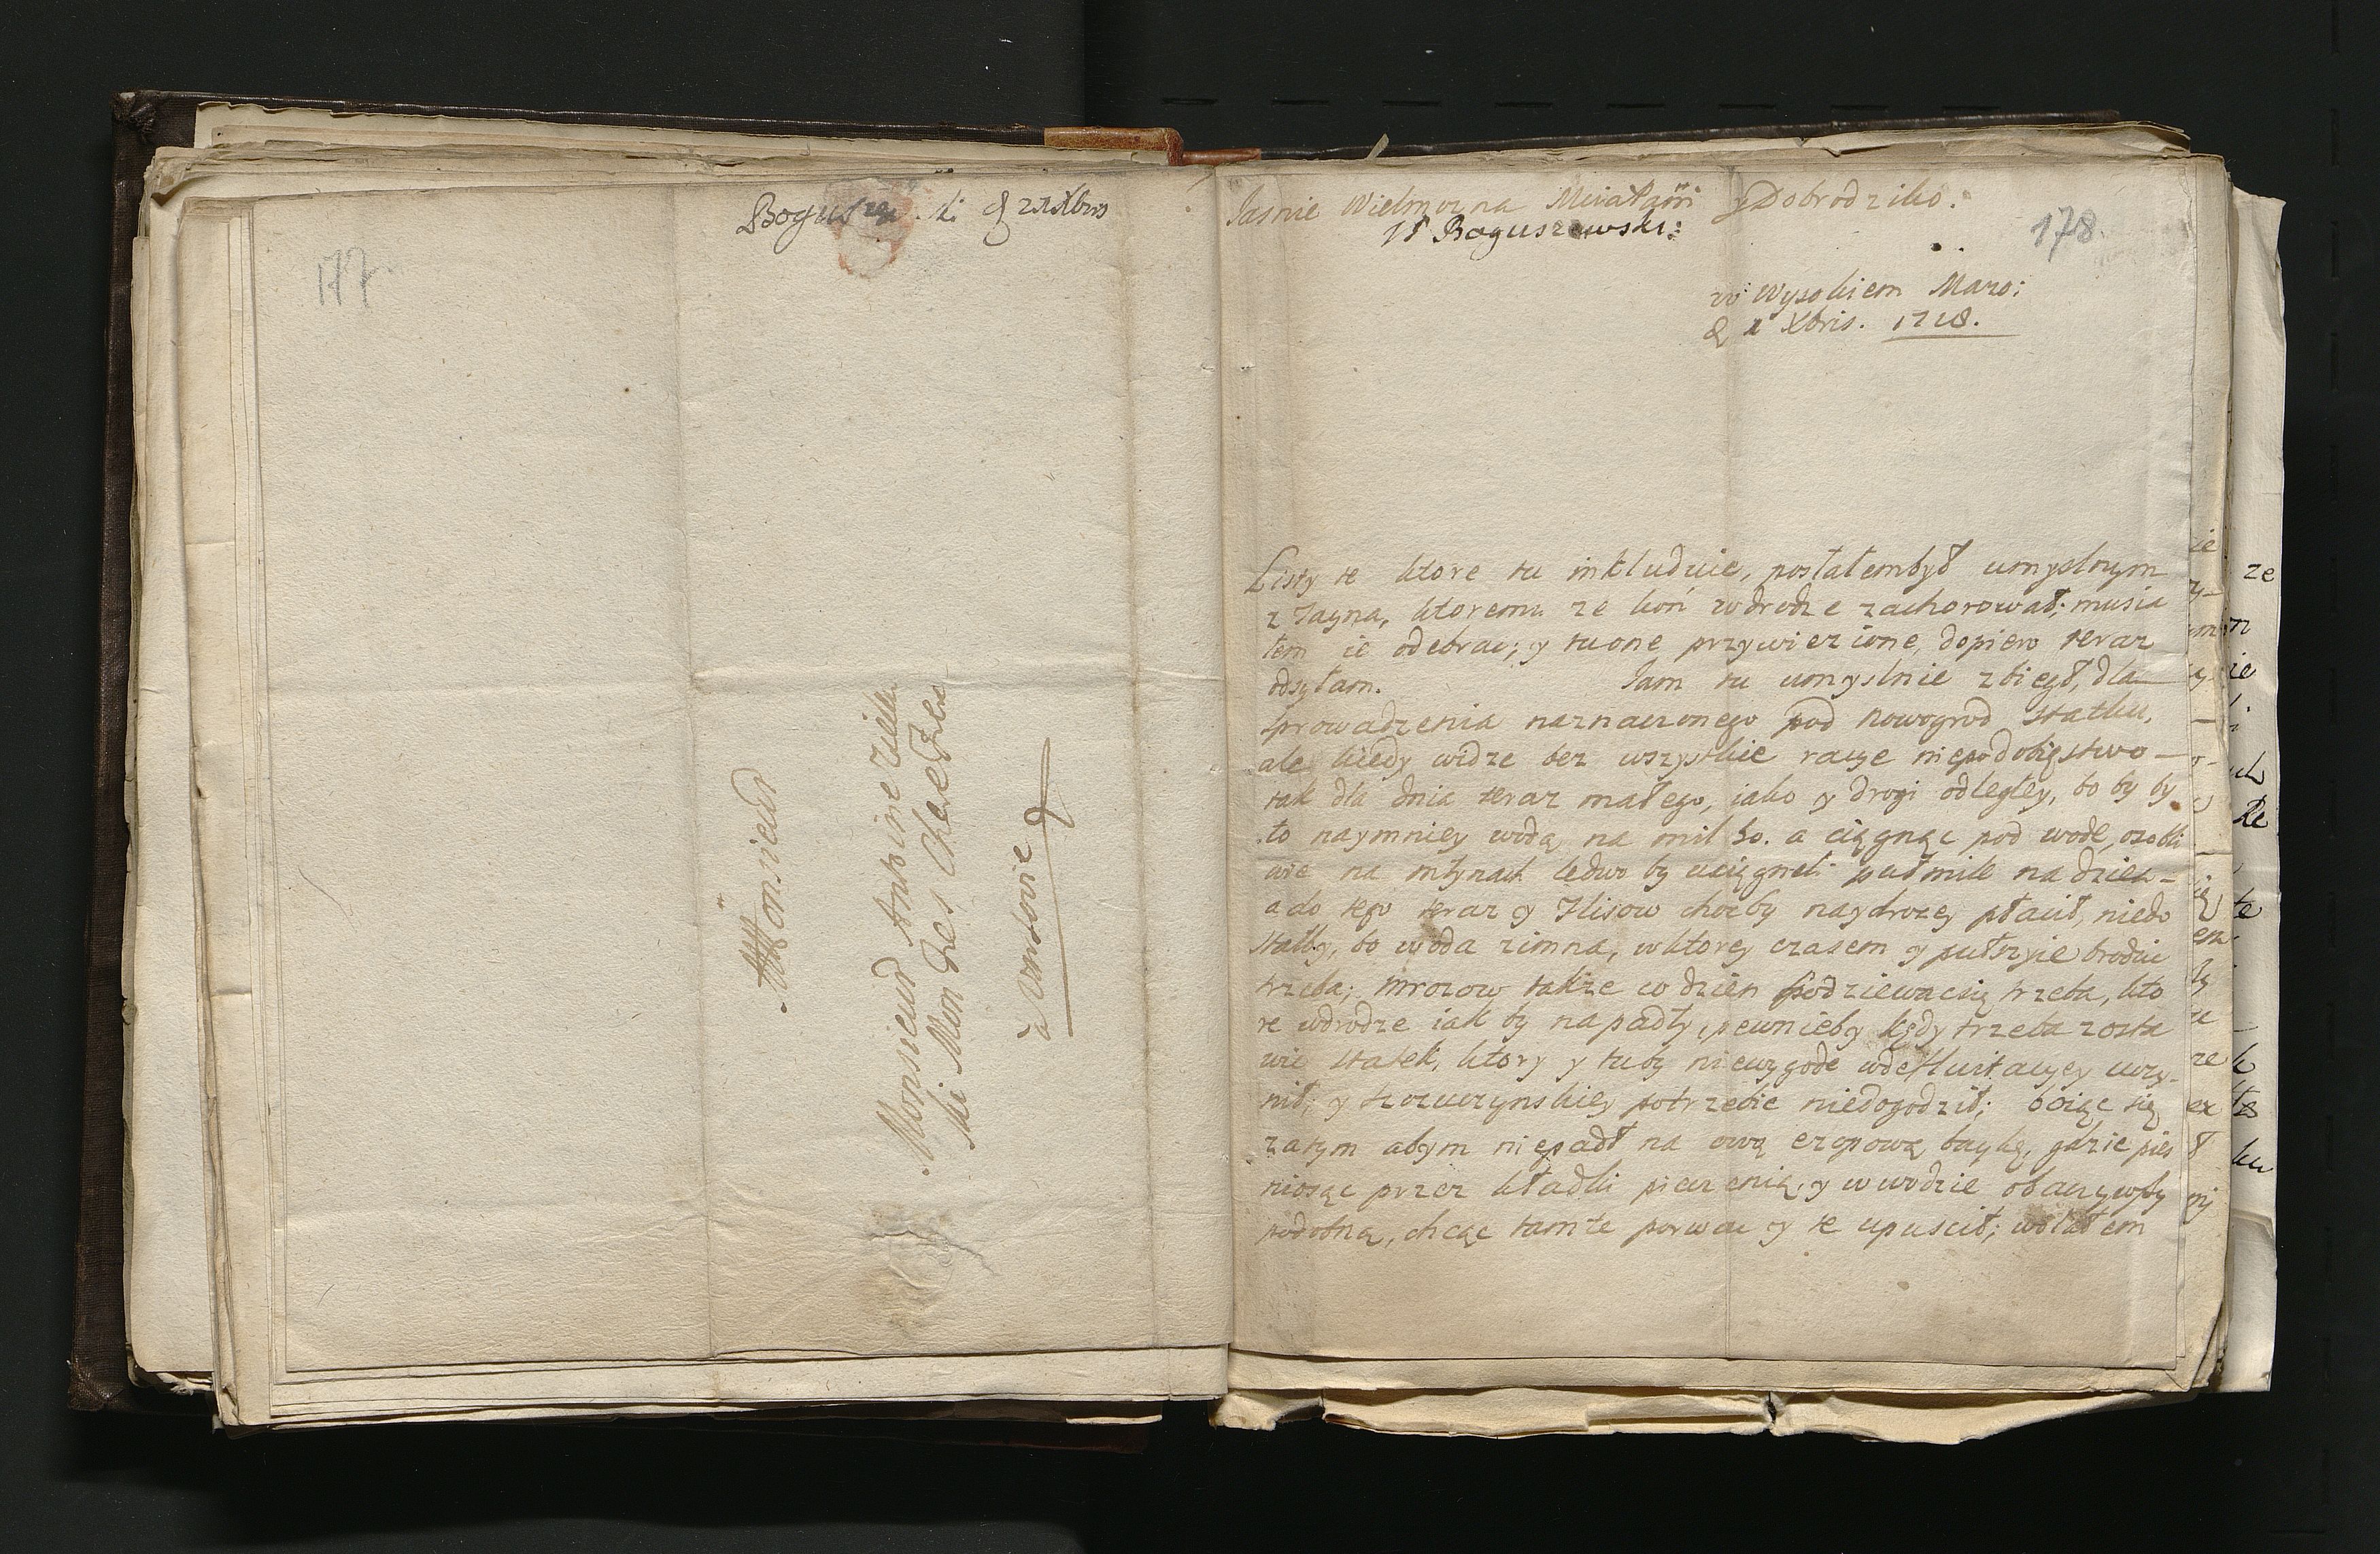 177
Monsieur
Monsieur Antoine Zille
ski Mon tres Cher
à Varsovie
Jasnie Wielmozna Mścia Pani y Dobrodziko.
JP Boguszewski:
178.
w Wysokiem Mazo:
d 1 Xbris. 1728.
Listy te ktore tu inkluduie, posłałem był umyslnym
z Tayna, ktoremu ze koń w drodze zachorował; musia
łem ie odebrac; y tu one przywiezione, dopiero teraz
odsyłam. Jam tu umyslnie zbiegł, dla
sprowadzenia naznaczonego pod Nowogrod statku,
ale kiedy widze bez wszystkie racye niepodobięstwo
tak dla dnia teraz małego, iako y drogi odległey, bo by by
ło naymniey wodą na mil a ciągnąc pod wodę, osobli
wie na młynach ledwo by uciągneli puł mile na dzien
a do tego teraz y Flisow chocby naydrozey płacił, niedo
stałby, bo woda zimna, w ktorey czasem y puł szyie brodzic
trzeba; mrozow takze co dzien spodziewac się trzeba, kto
re w drodze iak by napadły, pewnieby kędy trzeba zosta
wic statek, ktory y tu by niewygode w defluitacyey uczy
nił; y szczuczynskiey potrzebie niedogodził; boiąc się
zatym abym niepadł na ową ezopową baykę, gdzie pies
niosąc przez kładki pieczenią, y w wodzie obaczywszy
podobną, chcąc tamte porwac y te upuscił; wolałem